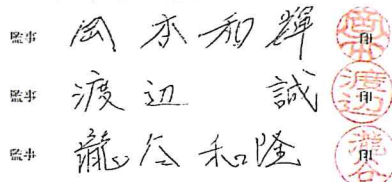 監事 岡本和輝 印
監事 渡辺 誠 印
監事 龍谷和隆 印